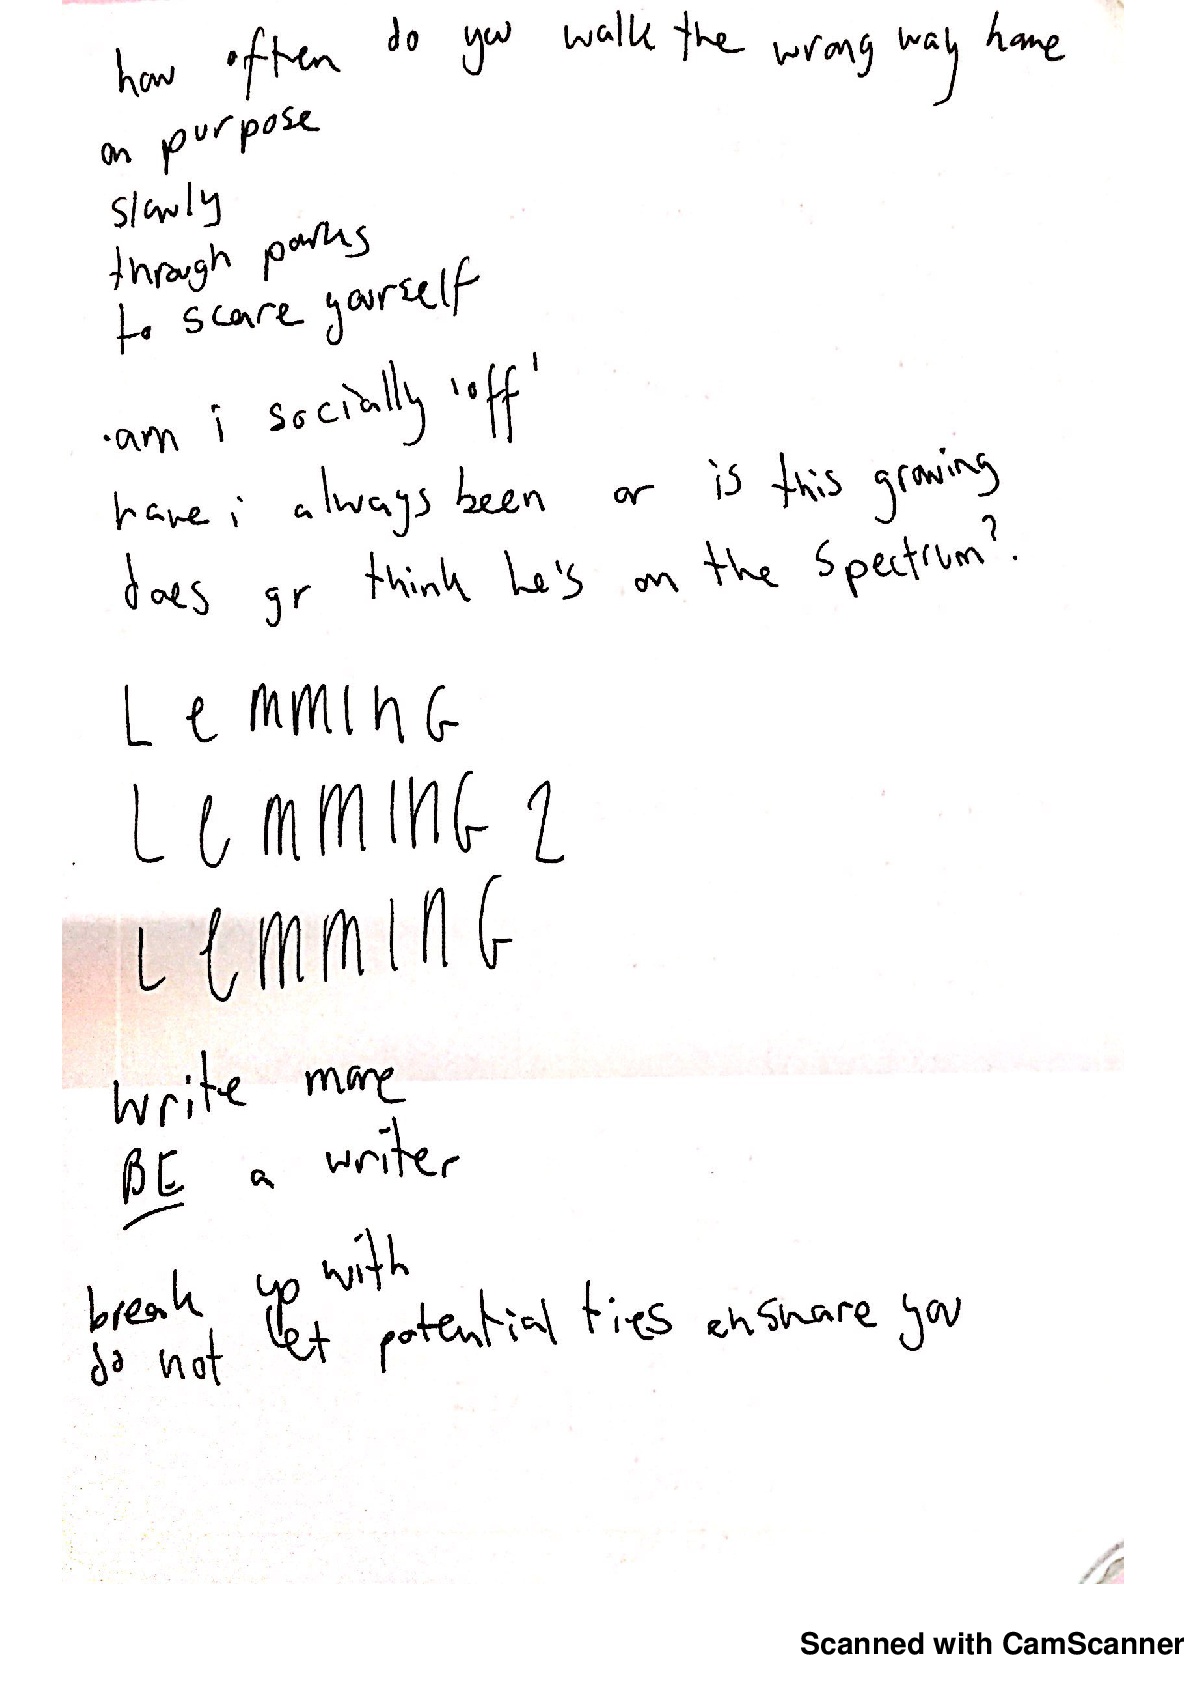 how often do you walk the wrong way home
on purpose
slowly
through parks
to scare yourself
·am i socially 'off'
have i always been or is this growing
does gr think he's on the spectrum?.
LeMMInG
LeMMInG 2
LeMMInG
write more
BE a writer
break up with
do not let potential ties ensnare you
Scanned with CamScanner